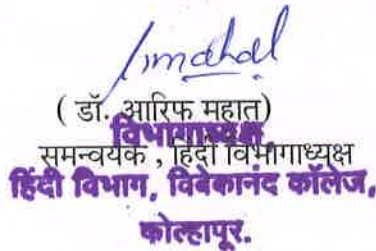 ( डॉ. आरिफ महात)
विभागाध्यक्ष,
समन्वयक , हिंदी विभागाध्यक्ष
हिंदी विभाग, विवेकानंद कॉलेज,
कोल्हापूर.